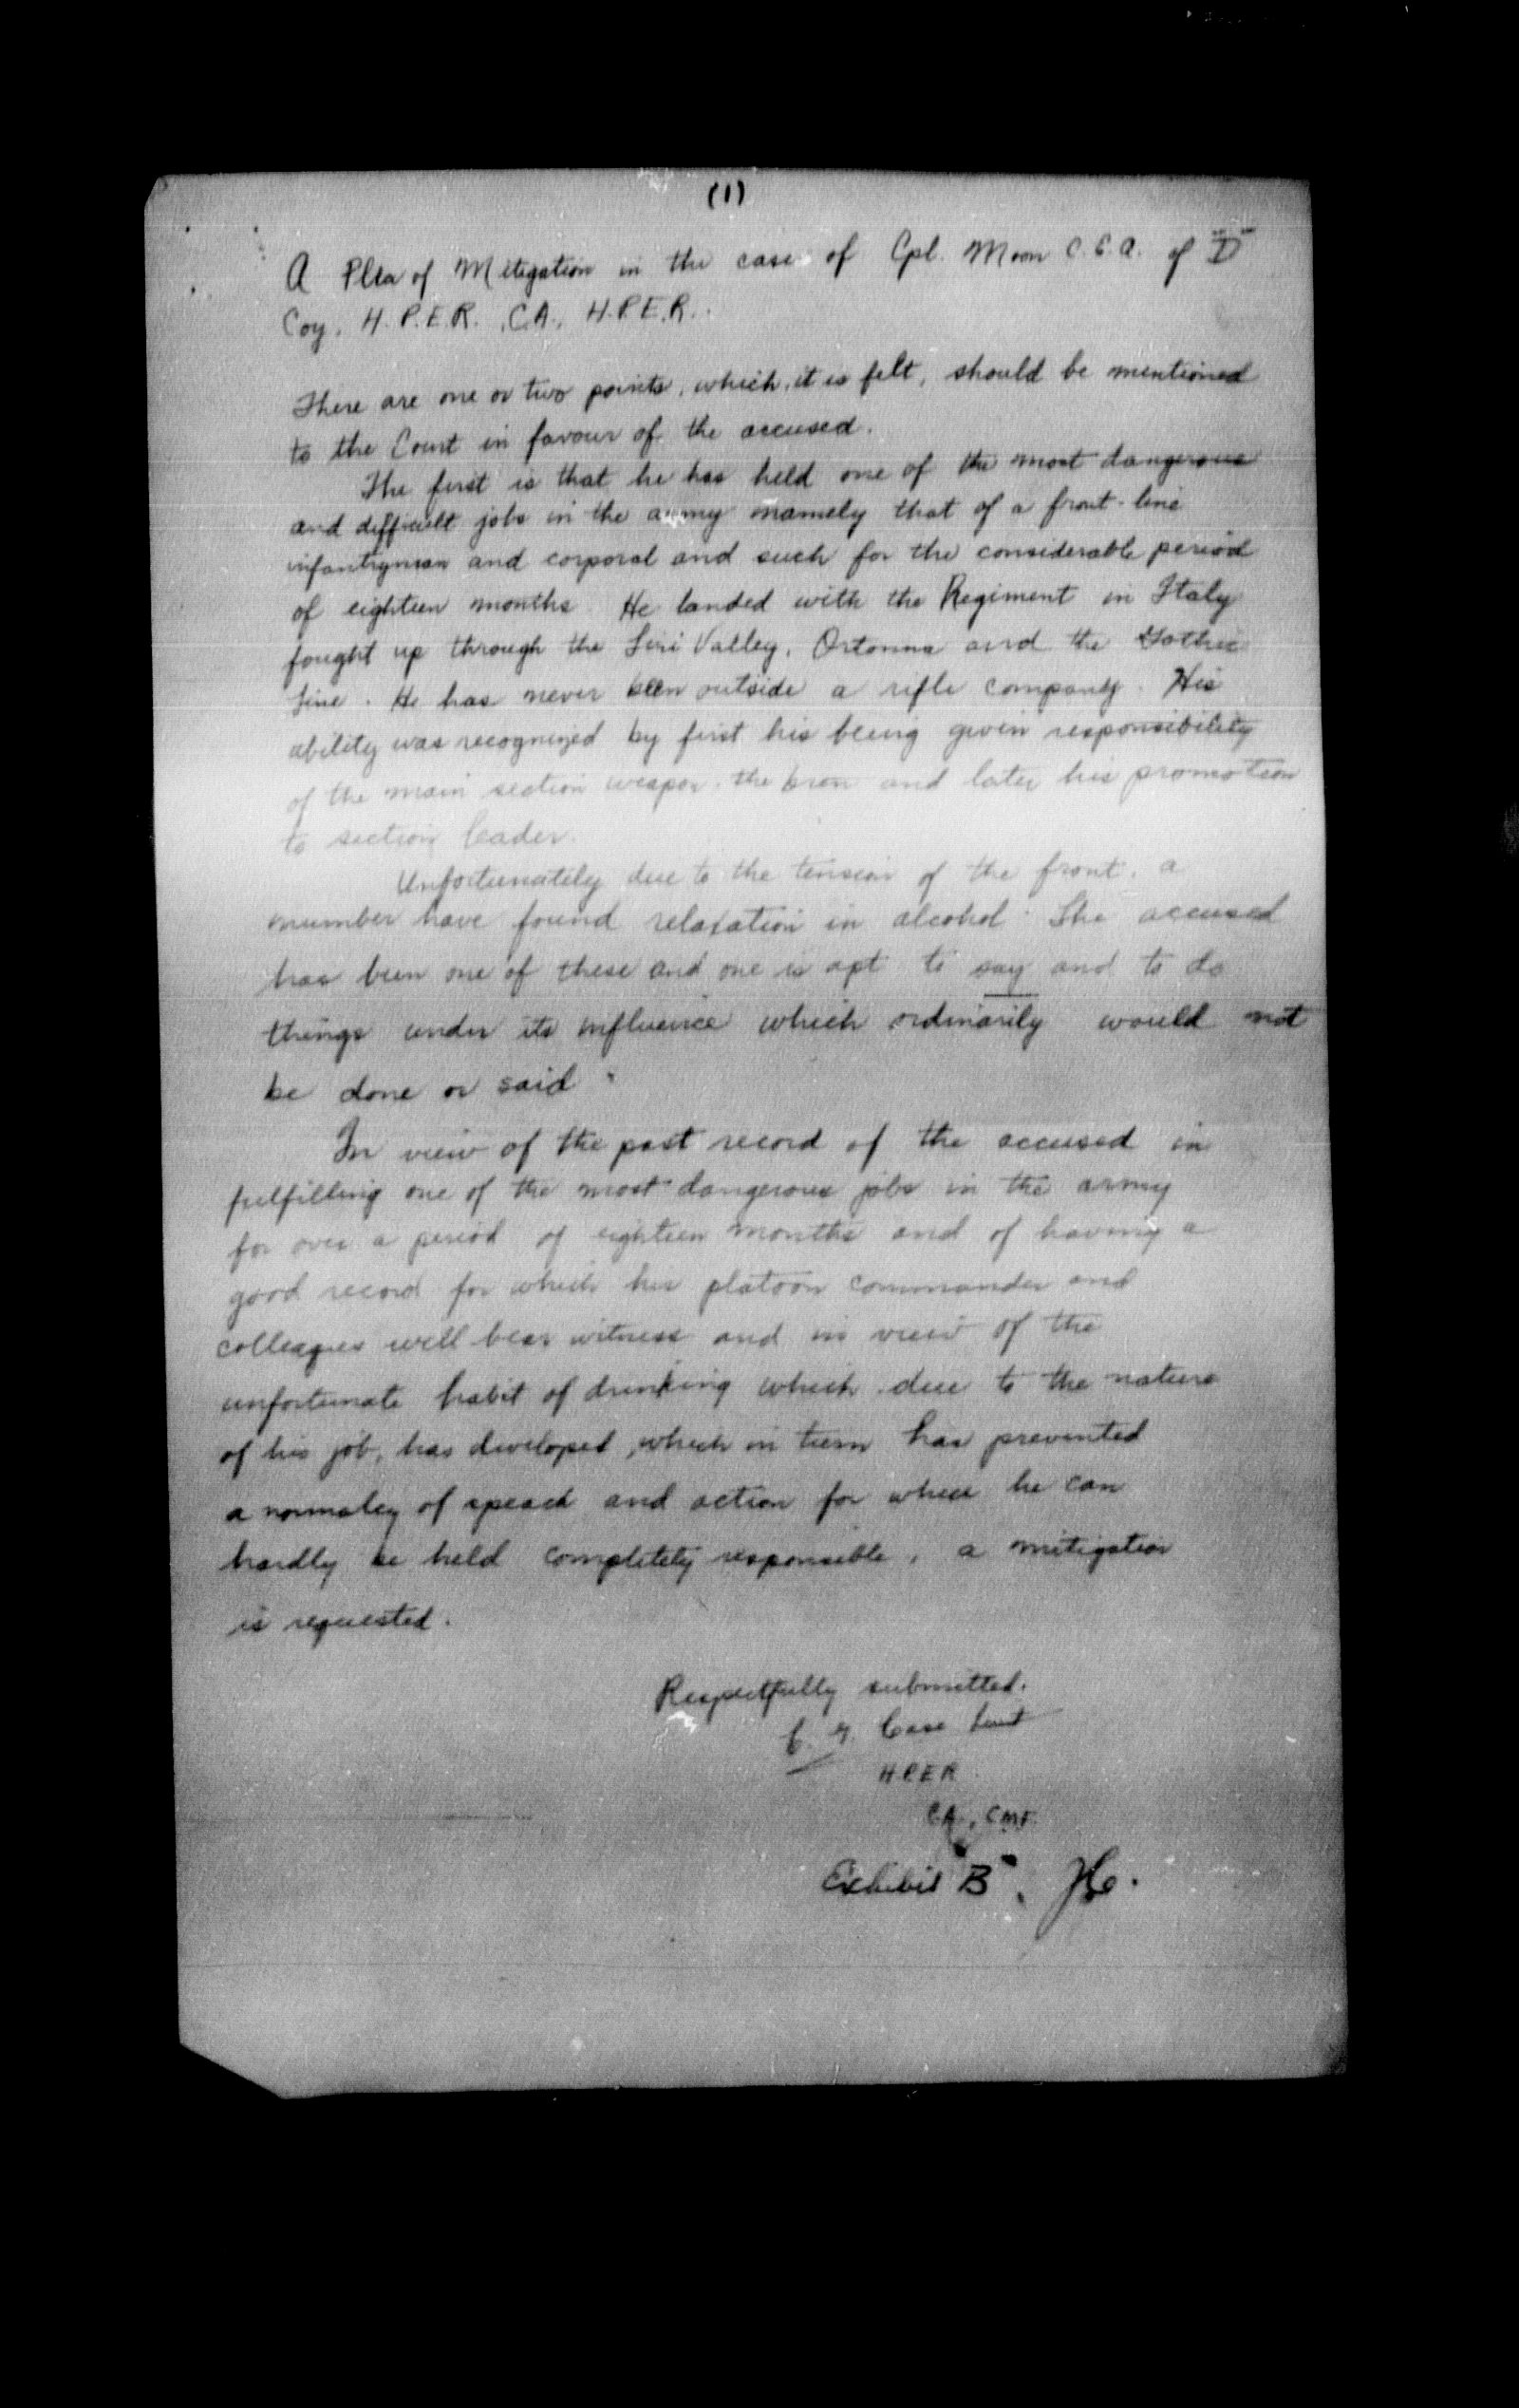 (1)
A Plea of Mitigation in the case of Cpl. Moon C.E.A. of "D"
Coy, H.P.E.R., C.A., H.P.E.R..
There are one or two points, which, it is felt, should be mentioned
to the Court in favour of the accused.
The first is that he has held one of the most dangerous
and difficult jobs in the army namely that of a front-line
infantryman and corporal and such for the considerable period
of eighteen months. He landed with the Regiment in Italy
fought up through the Liri Valley, Ortonna and the Gothic
Line. He has never been outside a rifle company. His
ability was recognized by first his being given responsibility
of the main section weapon, the bren and later his promotion
to section leader.
Unfortunately due to the tension of the front, a
number have found relaxation in alcohol. The accused
has been one of these and one is apt to say and to do
things under its influence which ordinarily would not
be done or said.
In view of the past record of the accused in
fulfilling one of the most dangerous jobs in the army
for over a period of eighteen months and of having a
good record for which his platoon commander and
colleagues will bear witness and in view of the
unfortunate habit of drinking which due to the nature
of his job, has developed, which in turn has prevented
a normalcy of speach and action for which he can
hardly be held completely responsible, a mitigation
is requested.
Respectfully submitted.
Case Lieut
H.P.E.R.
C.A., C.M.F.
Exhibit "B".